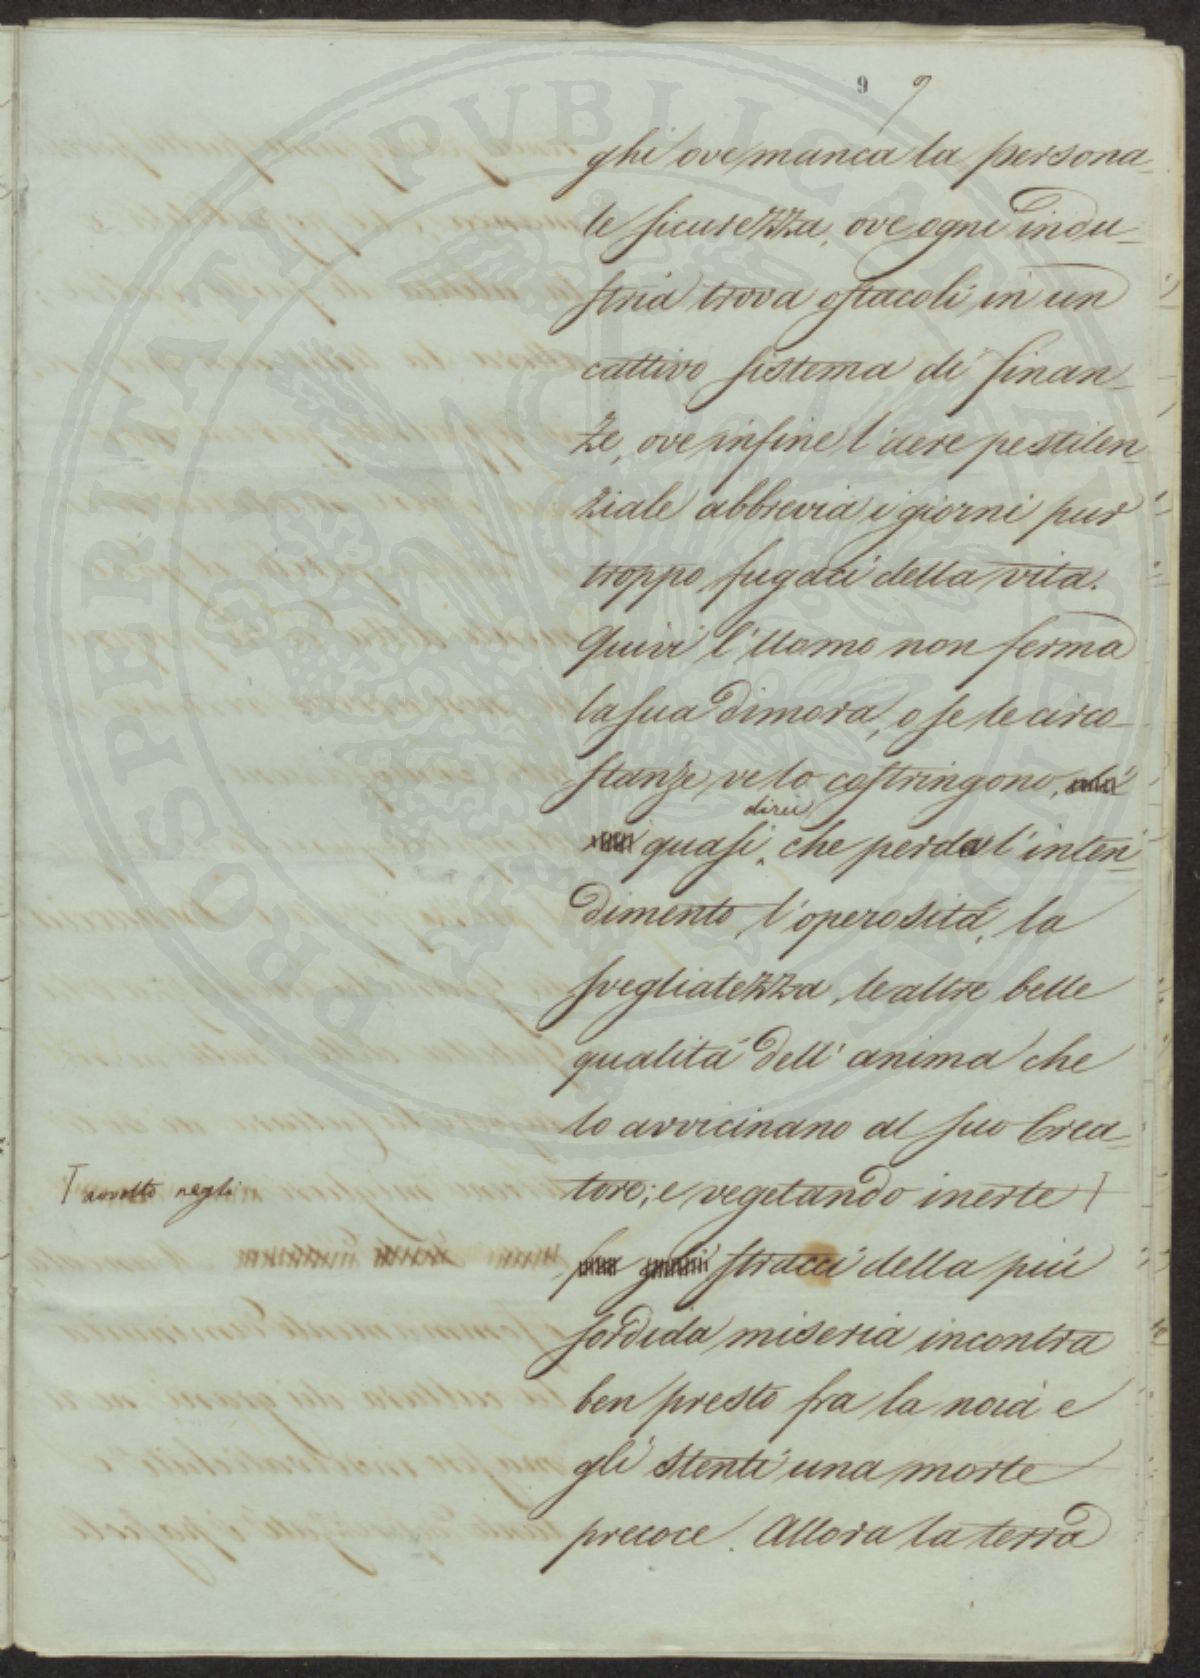 9 9
ghi ove manca la persona-
le sicurezza, ove ogni indu-
stria trova ostacoli in un
cattivo sistema di finan-
ze, ove infine l'aere pestilen-
ziale abbrevia i giorni pur
troppo fugaci della vita.
Quivi l'Uomo non ferma
la sua dimora, o se le circo-
stanze ve lo costringono,
direi
quasi, che perda l'inten-
dimento, l'operosità, la
svegliatezza, le altre belle
qualità dell'anima che
lo avvicinano al suo Crea-
T avvolto negli
tore; e vegetando inerte T
stracci della più
sordida miseria incontra
ben presto fra la noia e
gli stenti una morte
precoce. Allora la terra
PROSPERITATI PUBLICAE